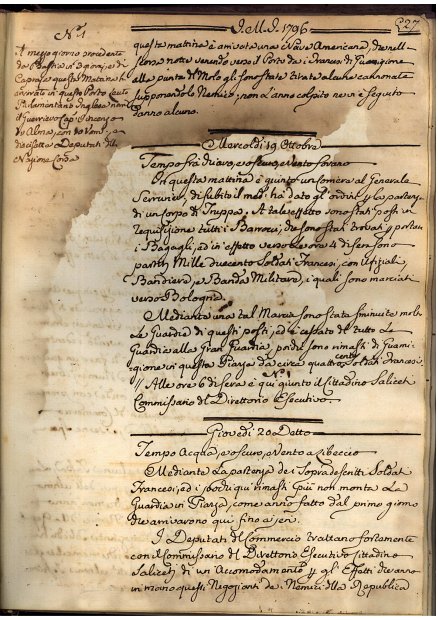 J. M. J. 1796
227
N.° 1
A mezzo giorno procedente
da Bastia
Capraja questa Mattina è
arrivato in questo Porto
Parlamentario Inglese nom.
il Guerriero Cap. Lorenzo
de Alma, con 10 Uomi., e
diecisette Deputati della
Nazione Corsa
questa mattina è arrivata una Nave Americana, che nell-
a notte venendo verso il Porto da i Francesi di Guarnigione
alla punta del Molo gli sono state tirate alcune cannonate
supponendolo Nemico, non l'anno colpito ne vi è seguito
danno alcuno.
Mercoldi 19 Ottobre
Tempo freddo, e oscuro, e Vento
In questa mattina è giunto un Corriere al Generale
Serrurier, di subito il med.° ha dato gl'ordini p. la partenza
di un corpo di Truppa. A tale effetto sono stati posti in
requisizione tutti i Barrocci, che sono stati trovati p. portare
i Bagagli, ed in effetto verso le ore 4 di sera sono
partiti Mille duecento Soldati Francesi, con Ufiziali,
Bandiera, e Banda Militare, i quali sono marciati
verso Bologna.
Mediante una tal Marcia sono state sminuite molt-
e Guardie di questi posti, ed è cessato del tutto la
Guardia alla Gran Guardia, poiche sono rimasti di Guarni-
gione in questa Piazza da circa quattro cento Soldati Francesi
N.° 1
// Alle ore 6 di sera è qui giunto il Cittadino Saliceti
Commissario del Direttorio Esecutivo.
Giovedi 20 Detto
Tempo Acqua, e oscuro, e Vento a Libeccio
Mediante la partenza dei Sopradescritti Soldati
Francesi, ed i pochi qui rimasti più non monta la
Guardia in Piazza, come anno fatto dal primo giorno
che arrivarono qui fino a jeri.
I Deputati del Commercio trattano fortemente
con il Commissario del Direttorio Esecutivo Cittadino
Salicetj di un Accomodamento p. gl'Effetti che anno
in mano questi Negozianti de i Nemici della Repubblica